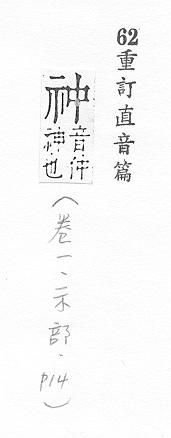 62重訂直音篇
祌
音仲
神也
(卷一、示部、p14)